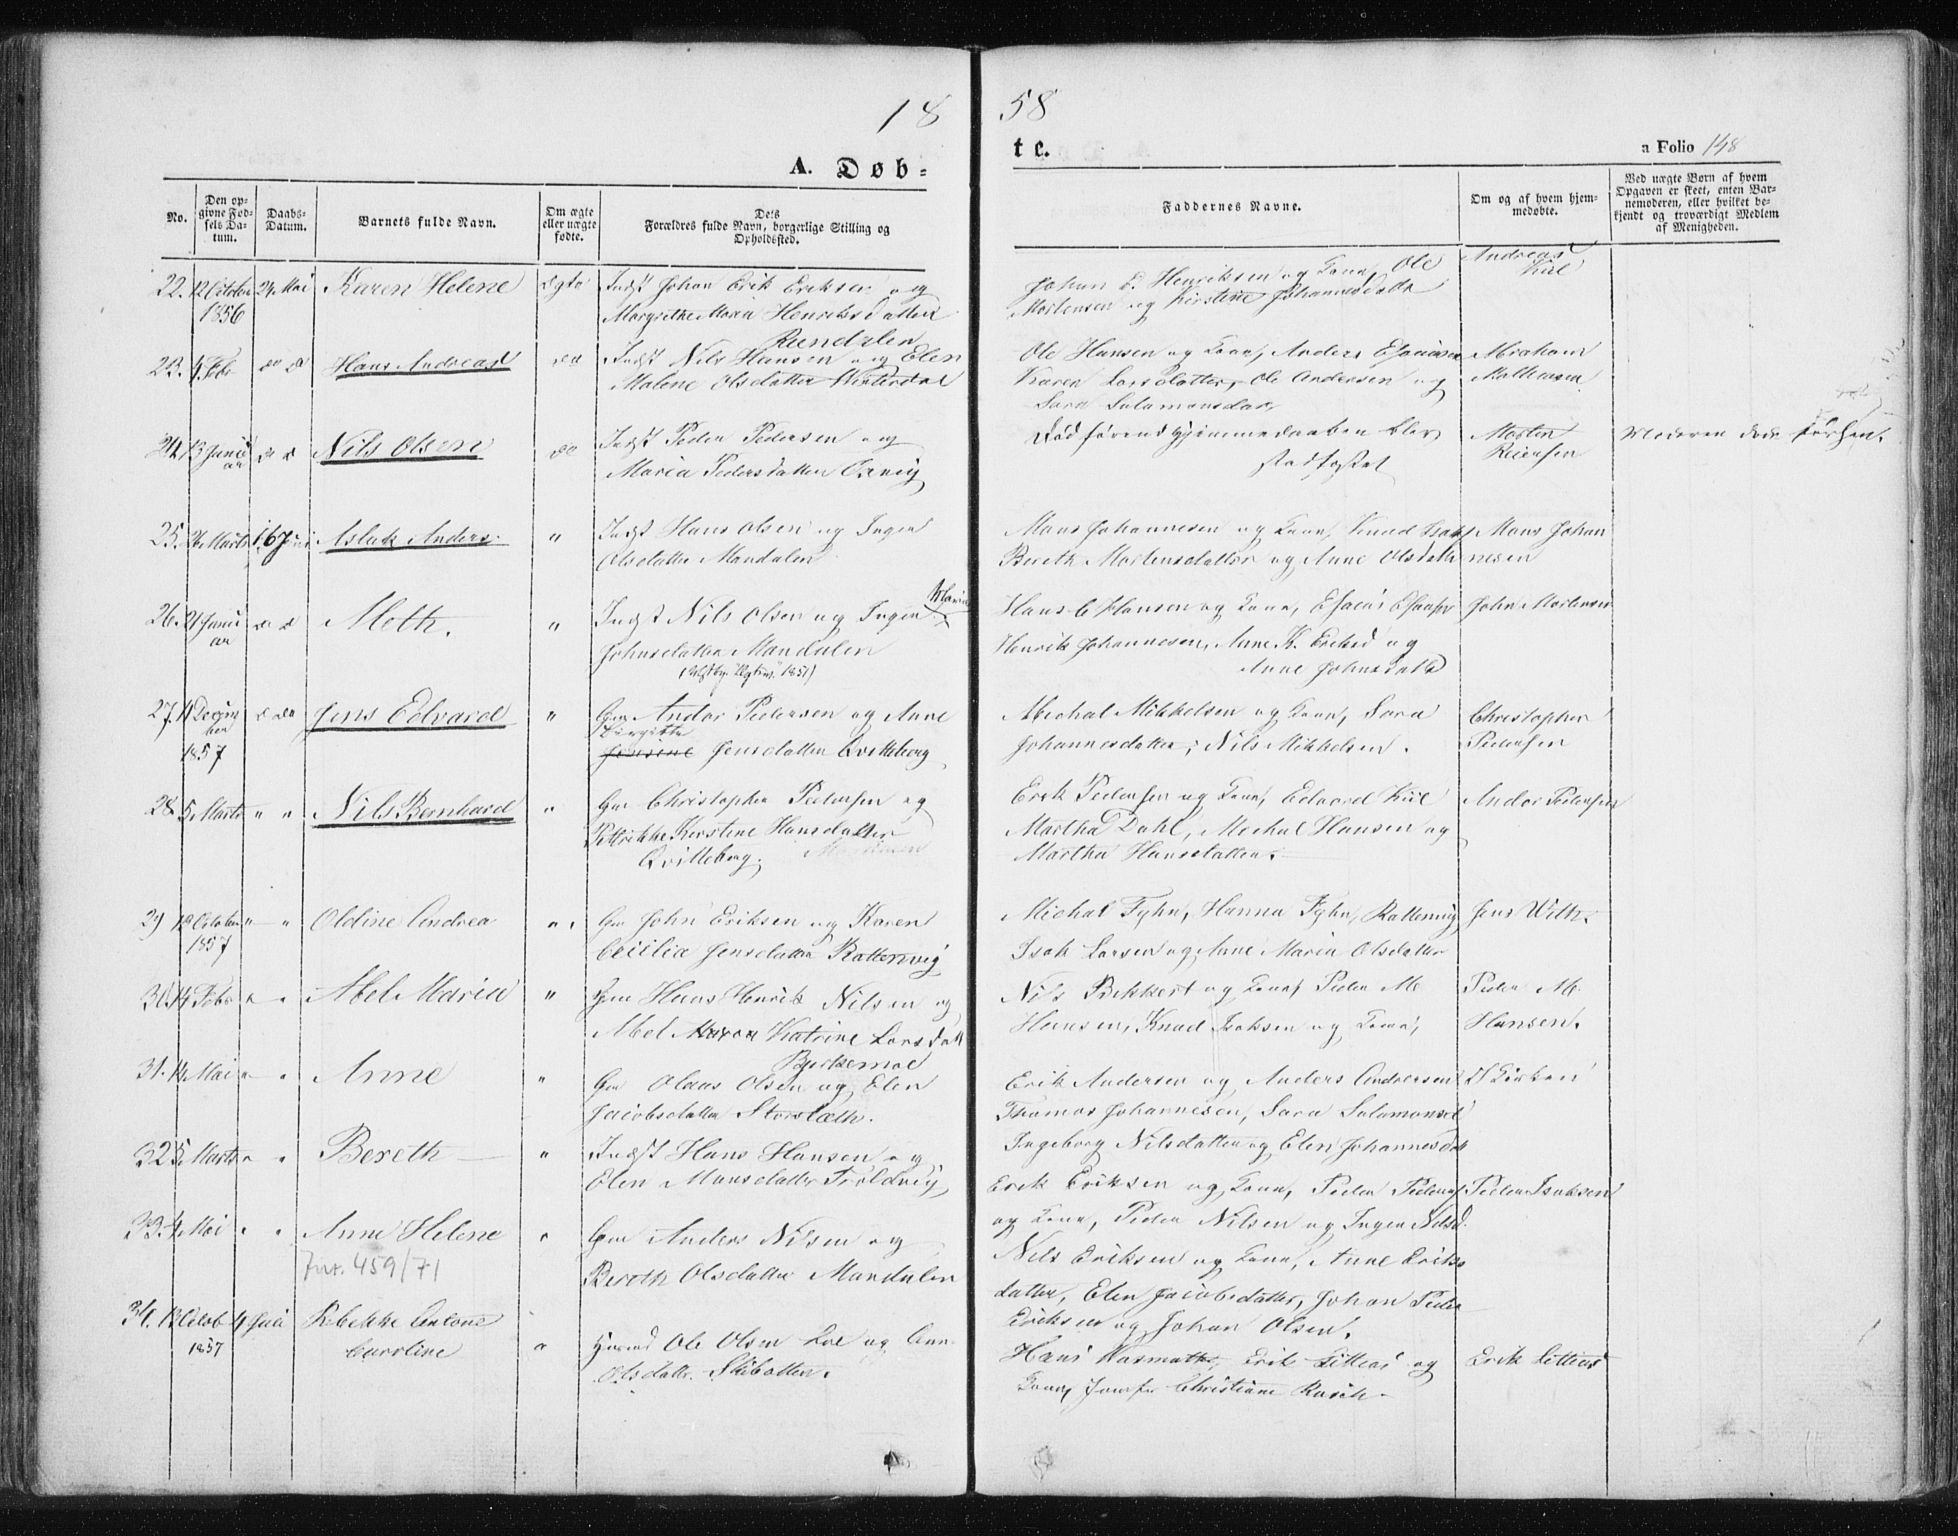 18
58
A. Døb-
te.
a Folio 148
No.
Den op-
givne Fød-
sels Da-
tum.
Daabs-
Datum.
Barnets fulde Navn.
Om ægte
eller uægte
fødte.
Dets
Forældres fulde Navn, borgerlige Stilling og
Opholdssted.
Faddernes Navne.
Om og af hvem hjem-
medøbte.
Ved uægte Børn af hvem
Opgaven er skeet, enten Bar-
nemoderen, eller hvilket be-
kjendt og troværdigt Medlem
af Menigheden.
22. 12 October 24 Mai Karen Helene ægte Indst Johan Erik Eriksen og
1856 Margrethe Maria Henriksdatter
Rundalen
Johan E. Henriksen og Kone, Ole
Mortensen og Kirstine Johannesdatr
Andreas
Kiil
23. 4 Febr do do Hans Andreas do Indst Nils Hansen og Elen
Malene Olsdatter
Ole Hansen og Kone, Anders Esaiasen
Karen Larsdatter, Ole Andersen og
Sara Salamonsdatr
Abraham
Mathesen
24. 13 Junii do do Nils Olsen do Indst Peder Pedersen og
ar Maria Pedersdatter
Død førend Hjemmedaaben blev
stadfæstet
Morten
Reiersen
Moderen døde
25. 26 Marts 16 Juni Aslak Anders " Indst Hans Olsen og Inger
Olsdatter Mandalen
Mons Johannesen og Kone, Knud Isaks
Bereth Mortensdatter og Anne Olsdatter
Mons Johan
nesen
26. 21 Janu do do Meth. " Indst Nils Olsen og Inger Maria
ar Johnsdatter Mandalen
Hans C Hansen og Kone, Esaias Esaiasen
Henrik Johannesen, Anne K. Eriksd og
Anne Johnsdatr
John Mortensen
27. 11 Decem do do Jens Edvard " Gm Andor Pedersen og Anne
ber
1857
Birgitte
Josine Jensdatter Qvitteberg
Michal Mikkelsen og Kone, Sara
Johannesdatter, Nils Mikkelsen.
Christopher
Pedersen
28. 5 Marts " " Nils Bernhard " Gm Christopher Pedersen og
Petrikke Kirstine Hansdatter
Qvitteberg.
Erik Pedersen og Kone, Edvard Kiil
Martha Dahl, Mechal Hansen og
Martha Hansdatter.
Andor Pedersen
29 18 October " " Oldine Andrea " Gm John Eriksen og Karen
1857 Cecilia Jensdatter Rottenvig
Michal Fyhn, Hanna Fyhn, Rottenvig
Isak Larsen og Anne Maria Olsdatter
Jens Wilh.
30. 14 Febr " " Abel Maria " Gm Hans Henrik Nilsen og
Abel Maria Katrine Larsdatt
Nils Bekkert og Kone, Peder M
Hansen, Knud Isaksen og Kone,
Peder M.
Hansen.
31. 14 Mai " " Anne " Gm Olaus Olsen og Elen
Jacobsdatter Storslæth.
Erik Andersen og Anders Andersen
Thomas Johannesen, Sara Salamonsd
Ingeborg Nilsdatter og Elen Johannesdatr
I Kirken
32 5 Marts " " Bereth " Indst Hans Hansen og
Elen Monsdatter Troldvig
Erik Eriksen og Kone, Peder Peders
og Kone, Peder Nilsen og Inger Nilsd.
Peder Isaksen
33. 4 Mai " " Anne Helene " Gm Anders Nilsen og
Jnr. 459/71
Bereth Olsdatter Mandalen
Nils Eriksen og Kone, Anne Eriks
datter, Elen Jacobsdatter, Johan Peder
Eriksen og Johan Olsen.
34. 13 Octob 4 Juli Rebekke Antone
1857 Caroline " Ole Olsen og
Olsdatter Skibotten.
Hans Rasmus, Erik og
Kone, Jomfr Christiane Rasch.
Erik